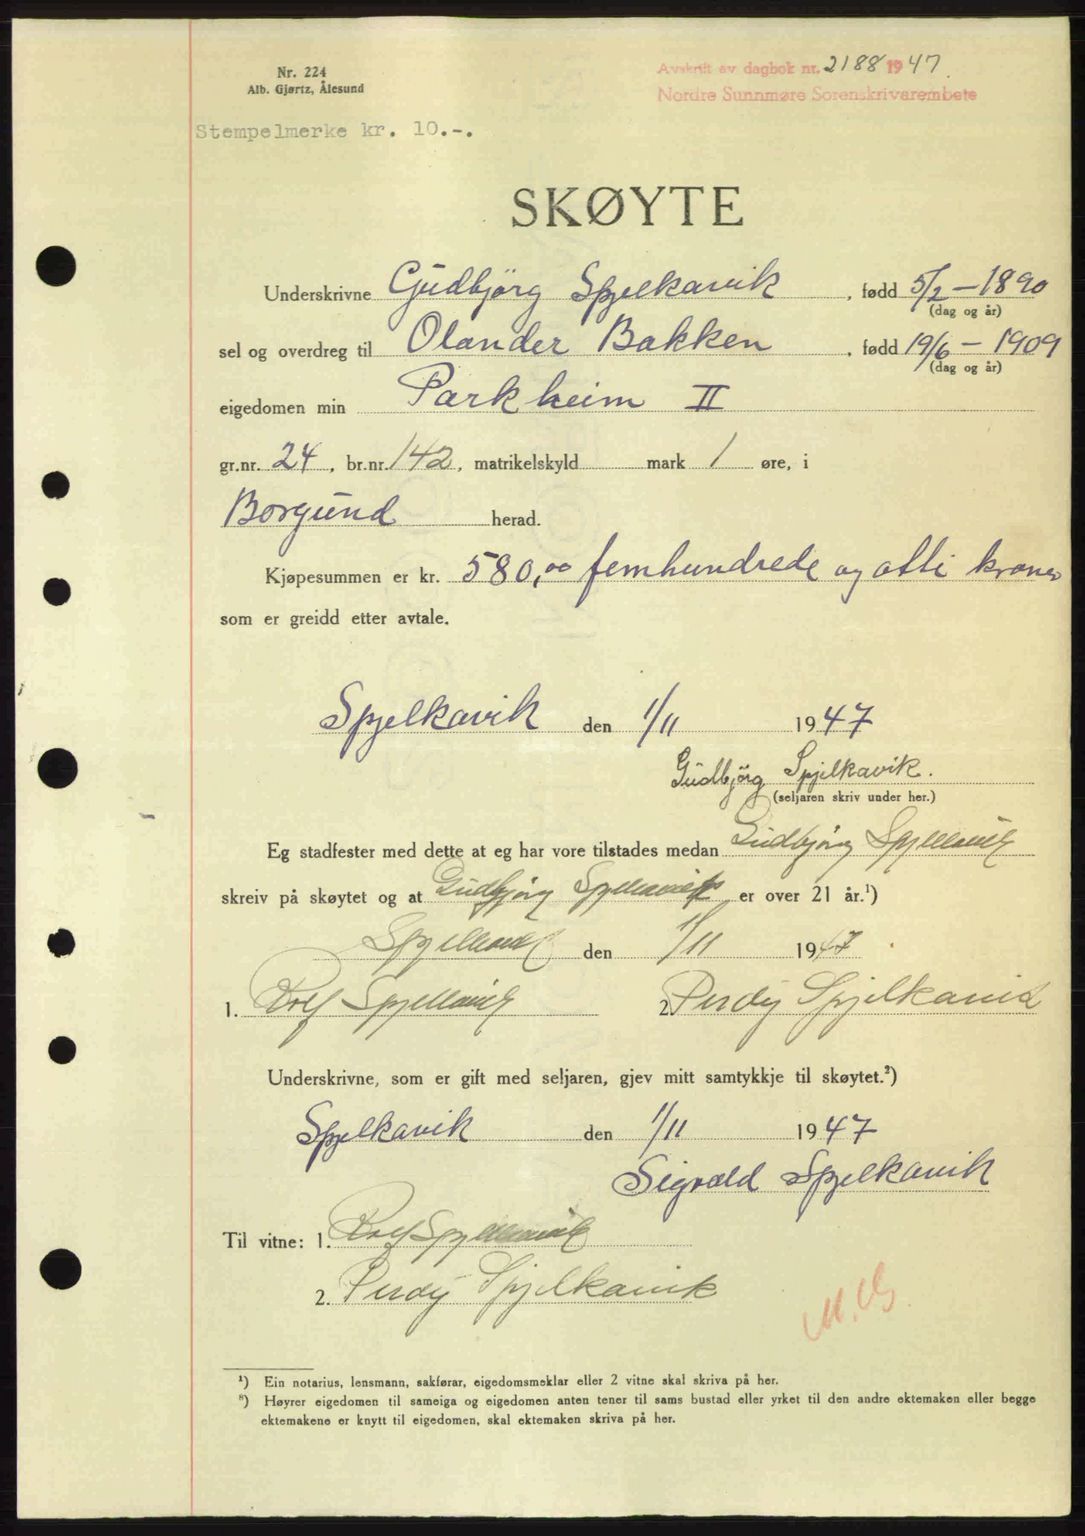 Nr. 224
Alb. Gjørtz, Ålesund
Avskrift av dagbok nr. 2188 1947.
Nordre Sunnmøre Sorenskriverembete
Stempelmerke kr. 10.-.
SKØYTE
Underskrivne Gudbjörg Spjelkavik, fødd 5/2 – 1890
(dag og år)
sel og overdreg til Olander Bakken, fødd 19/6 – 1909
(dag og år)
eigedomen min Parkheim II
gr.nr. 24, br.nr. 142, matrikelskyld mark 1 øre, i
Borgund herad.
Kjøpesummen er kr. 580,00 femhundrede og otti kroner
som er greidd etter avtale.
Spjelkavik den 1/11 1947
Gudbjörg Spjelkavik.
(seljaren skriv under her.)
Eg stadfester med dette at eg har vore tilstades medan Gudbjörg Spjelkavik
skreiv på skøytet og at Gudbjörg Spjelkavik er over 21 år.¹)
Spjelkavik den 1/11 1947
1. Rolf Spjelkavik 2. Perdy Spjelkavik
Underskrivne, som er gift med seljaren, gjev mitt samtykkje til skøytet.²)
Spjelkavik den 1/11 1947
Sigvald Spjelkavik
Til vitne: 1. Rolf Spjelkavik
2. Perdy Spjelkavik
¹) Ein notarius, lensmann, sakførar, eigedomsmeklar eller 2 vitne skal skriva på her.
²) Høyrer eigedomen til sameiga og eigedomen anten tener til sams bustad eller yrket til den andre ektemaken eller begge
ektemakene er knytt til eigedomen, skal ektemaken skriva på her.